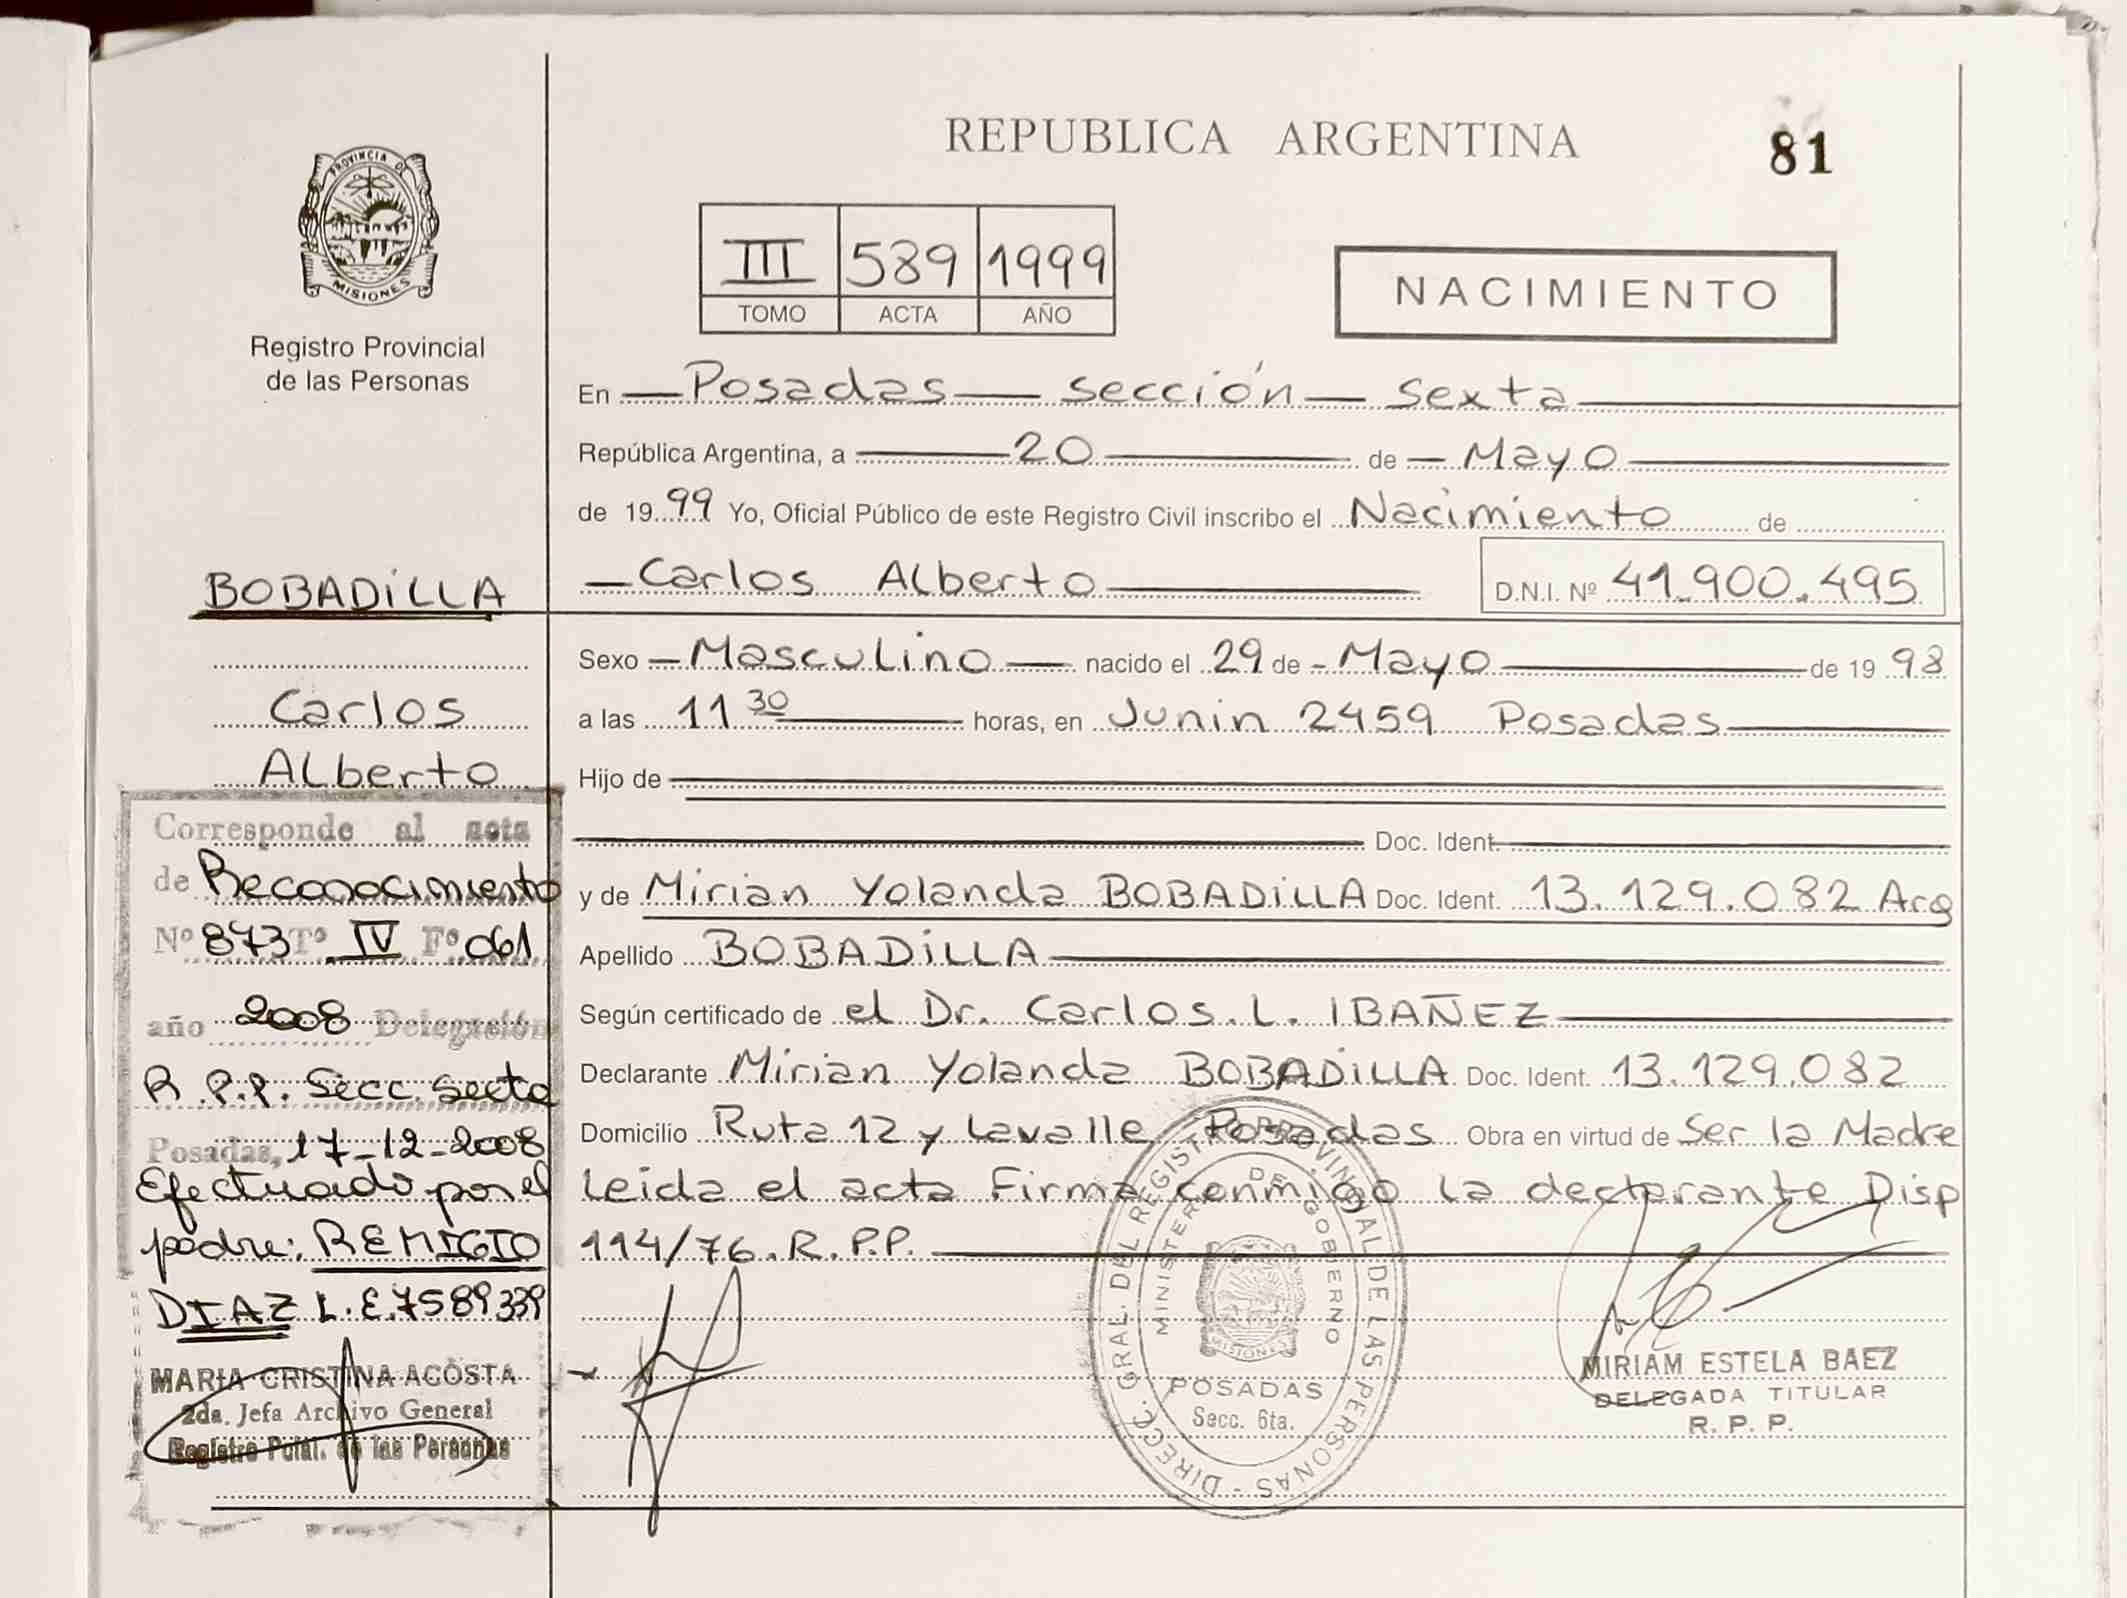 REPUBLICA ARGENTINA
81
PROVINCIA DE
MISIONES
Registro Provincial
de las Personas
III 589 1999
TOMO ACTA AÑO
NACIMIENTO
En Posadas sección sexta
República Argentina, a 20 de Mayo
de 1999 Yo, Oficial Público de este Registro Civil inscribo el Nacimiento de
Carlos Alberto D.N.I. Nº 41.900.495
BOBADiLLA
Carlos
Alberto
Sexo Masculino nacido el 29 de Mayo de 1998
a las 11 30 horas, en Junin 2459 Posadas
Hijo de
Doc. Ident.
y de Mirian Yolanda BOBADiLLA Doc. Ident. 13.129.082 Arg
Apellido BOBADiLLA
Según certificado de el Dr. Carlos. L. IBAÑEZ
Declarante Mirian Yolanda BOBADiLLA Doc. Ident. 13.129.082
Domicilio Ruta 12 y Lavalle Posadas Obra en virtud de Ser la Madre
Leida el acta Firma conmigo la declarante Disp
114/76.R.P.P.
Corresponde al acta
de Reconocimiento
Nº 873 Tº IV Fº 061
año 2008 Delegación
R.P.P. Secc. Sexta
Posadas, 17-12-2008
Efectuado por el
padre: REMIGIO
DIAZ L.E.7589339
MARIA CRISTINA ACOSTA
2da. Jefa Archivo General
Registro Pcial. de las Personas
DIRECC. GRAL. DEL REGISTRO PROVINCIAL DE LAS PERSONAS -
MINISTERIO DE GOBIERNO
MISIONES
POSADAS
Secc. 6ta.
MIRIAM ESTELA BAEZ
DELEGADA TITULAR
R. P. P.